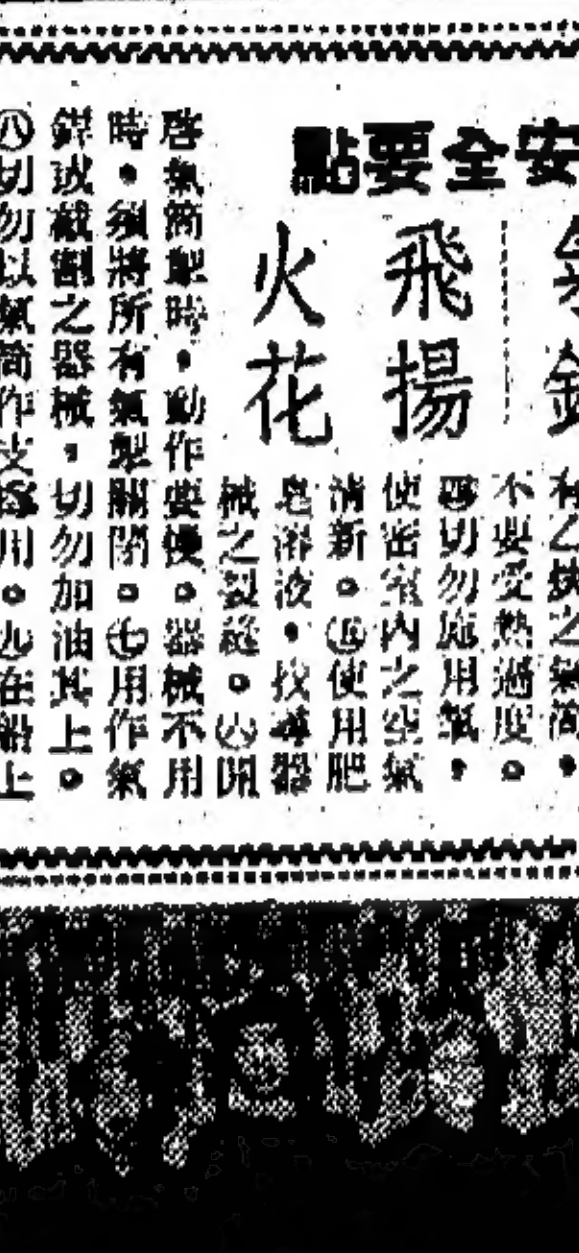 安全要點
飛揚
火花
有乙炔之氣筒，
不要受熱過度。
四切勿施用氧，
使密室內之空氣
清新。五使用肥
皂溶液，找尋器
械之裂縫。六開
啓氣筒掣時，動作要慢。器械不用
時，須將所有氣掣關閉。七用作氣
銲或截割之器械，切勿加油其上。
八切勿以氣筒作支撐用。九在船上